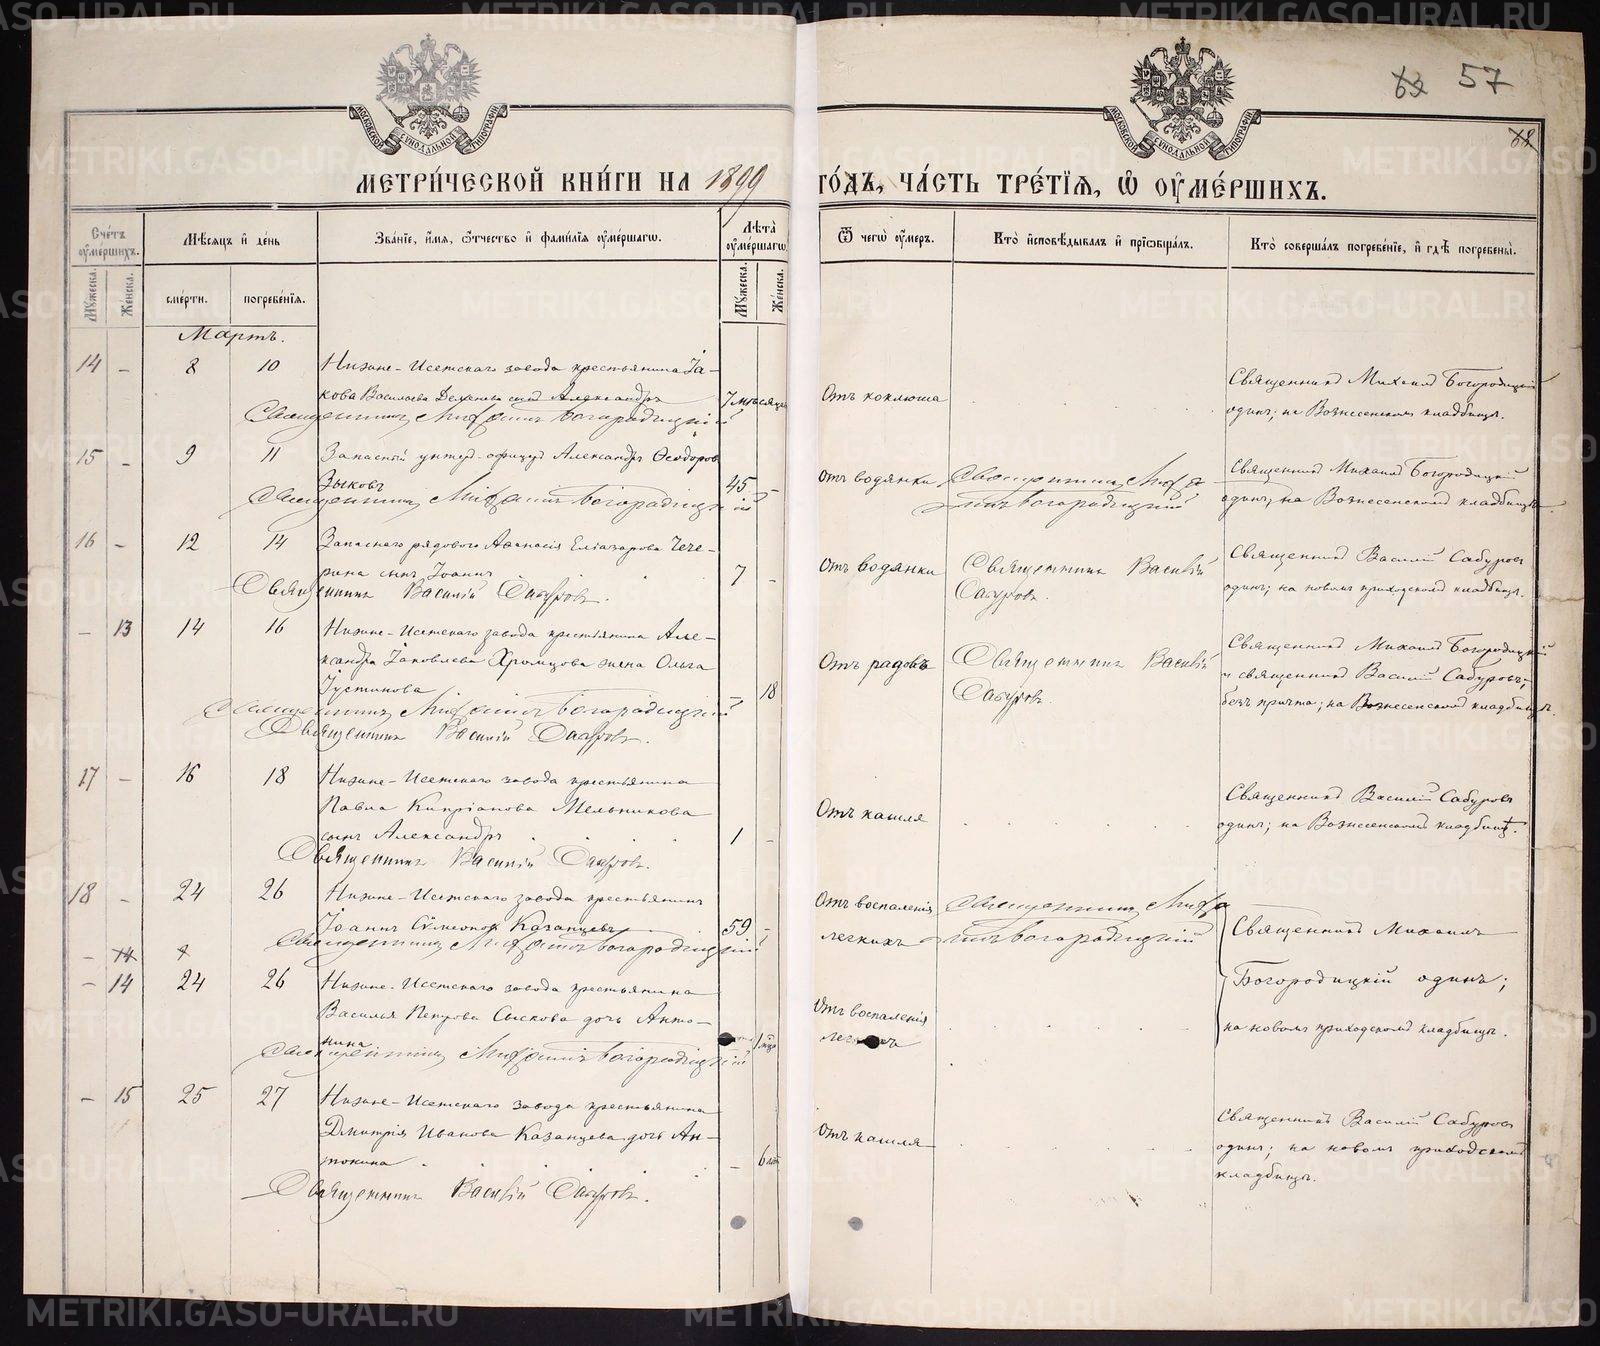 METRIKI.GASO-URAL.RU
57
МОСКОВСКОЙ СѴНОДАЛЬНОЙ ТИПОГРАФІИ
МЕТРИ́ЧЕСКОЙ КНИ́ГИ НА 1899 ГО́ДЪ, ЧА́СТЬ ТРЕ́ТІЯ, Ѡ ОУМЕ́РШИХЪ.
Сче́тъ оуме́ршихъ.
Мꙋжеска.
Же́нска.
Мѣ́сяцъ и де́нь
сме́рти.
погребе́нїя.
Зва́нїе, и́мя, ѻ҆тчество и фами́лїя оуме́ршагѡ.
Лѣ́та оуме́ршагѡ.
Мꙋжеска.
Же́нска.
Ѿ чегѡ̀ оу́меръ.
Кто̀ исповѣ́дывалъ и прїѡбща́лъ.
Кто̀ соверша́лъ погребе́нїе, и гдѣ̀ погребены̀.
Мартъ.
14 - 8 10 Нижне-Исетскаго завода крестьянина Іа-
кова Васильева сынъ Александръ 7 мѣсяцевъ
Священникъ Михаилъ Богородицкій
Отъ коклюша
Священникъ Михаилъ Богородицкій
одинъ; на Вознесенскомъ кладбищѣ.
15 - 9 11 Запасный унтер-офицеръ Александръ Ѳеодоровъ
Зыковъ 45 -
Священникъ Михаилъ Богородицкій
Отъ водянки Священникъ Миха-
илъ Богородицкій
Священникъ Михаилъ Богородицкій
одинъ; на Вознесенскомъ кладбищѣ.
16 - 12 14 Запаснаго рядового Аѳанасія Еліазарова Чече-
рина сынъ Іоаннъ 7 -
Священникъ Василій Сабуровъ.
Отъ водянки Священникъ Василій
Сабуровъ.
Священникъ Василій Сабуровъ
одинъ; на новомъ приходскомъ кладбищѣ.
- 13 14 16 Нижне-Исетскаго завода крестьянина Але-
ксандра Іаковлева Хромцова жена Ольга
Іустинова - 18
Священникъ Михаилъ Богородицкій
Священникъ Василій Сабуровъ.
Отъ родовъ Священникъ Василій
Сабуровъ.
Священникъ Михаилъ Богородицкій
и священникъ Василій Сабуровъ,
безъ причта; на Вознесенскомъ кладбищѣ.
17 - 16 18 Нижне-Исетскаго завода крестьянина
Павла Кипріанова Мельникова
сынъ Александръ 1 -
Священникъ Василій Сабуровъ.
Отъ кашля
Священникъ Василій Сабуровъ
одинъ; на Вознесенскомъ кладбищѣ.
18 - 24 26 Нижне-Исетскаго завода крестьянинъ
Іоаннъ Сѵмеоновъ Казанцевъ 59 -
Священникъ Михаилъ Богородицкій
Отъ воспаленія
легкихъ
Священникъ Миха-
илъ Богородицкій
Священникъ Михаилъ
Богородицкій одинъ;
на новомъ приходскомъ кладбищѣ.
- 14
- 14 24 26 Нижне-Исетскаго завода крестьянина
Василья Петрова Сыскова дочь Анто-
нина 1 мѣс
Священникъ Михаилъ Богородицкій
Отъ воспаленія
легкихъ
- 15 25 27 Нижне-Исетскаго завода крестьянина
Дмитрія Иванова Казанцева дочь Ан-
тонина - 6
Священникъ Василій Сабуровъ.
Отъ кашля
Священникъ Василій Сабуровъ
одинъ; на новомъ приходскомъ
кладбищѣ.